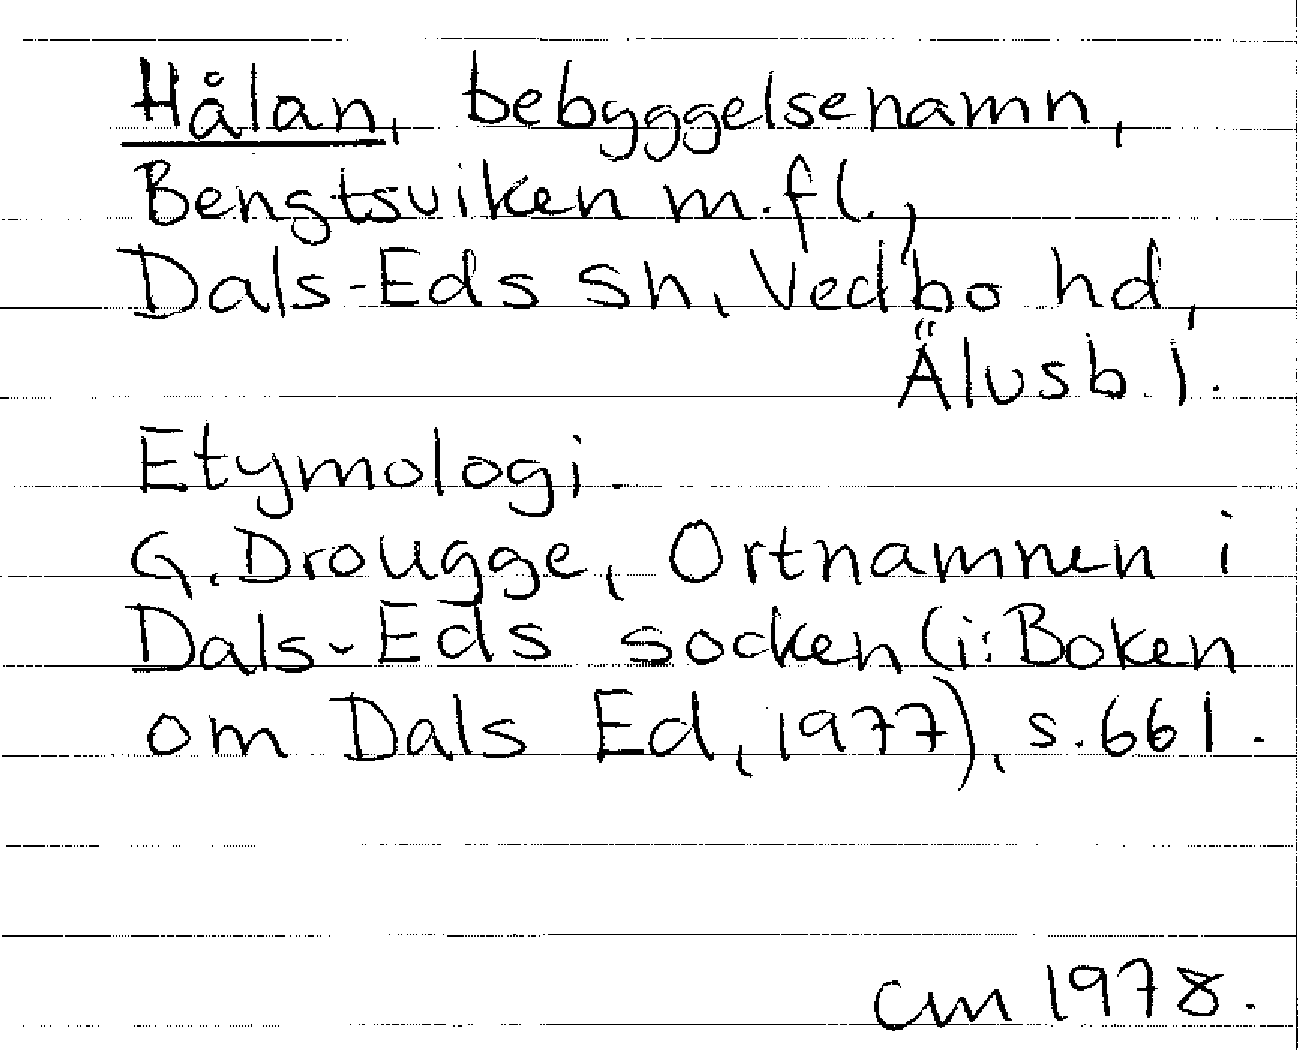 Hålan, bebyggelsenamn,
Bengtsviken m.fl.,
Dals-Eds sn, Vedbo hd,
Älvsb. l.
Etymologi.
G. Drougge, Ortnamnen i
Dals-Eds socken (i: Boken
om Dals Ed, 1977), s. 661.
CM 1978.